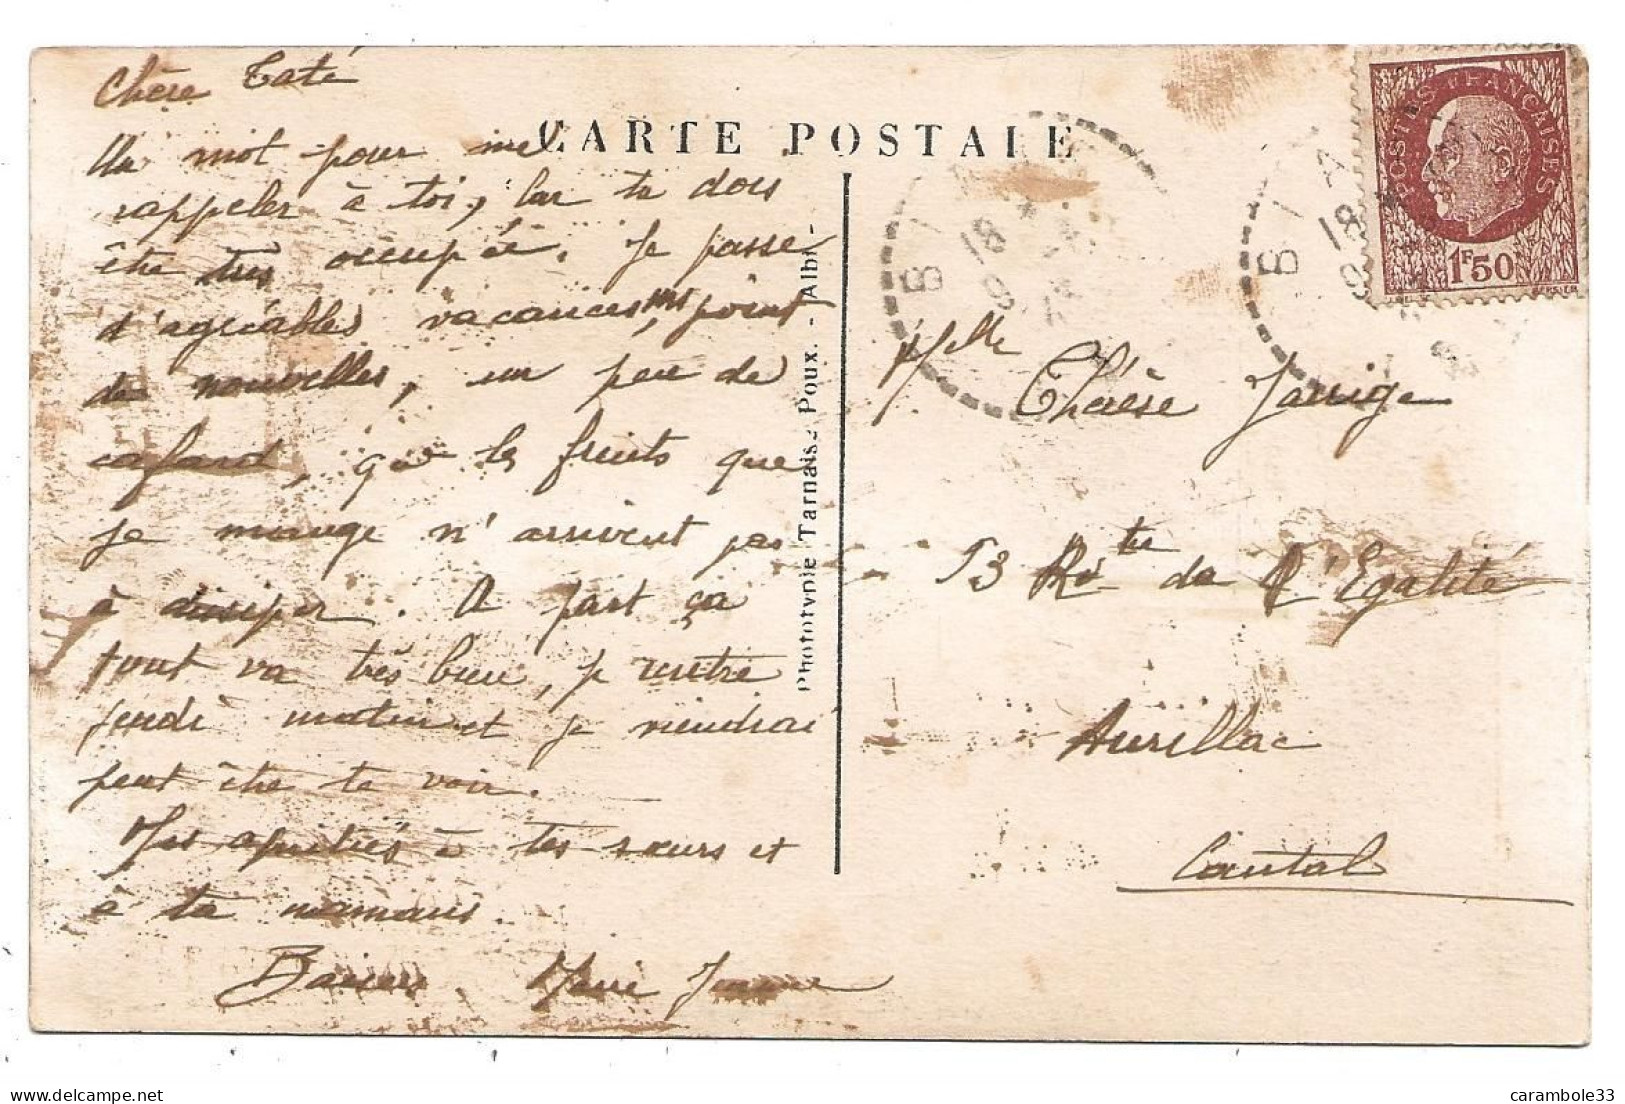 Chère Taté
Un mot pour me
rappeler à toi, car tu dois
être très occupée. Je passe
d'agréables vacances, mst point
de nouvelles, un peu de
cafard, que les fruits que
je mange n'arrivent pas
à dissiper. A part ça
tout va très bien, je rentre
jeudi matin et je viendrai
peut être te voir.
Mes amitiés à tes sœurs et
à ta maman.
Baisers Marie Jeanne
CARTE POSTALE
Phototypie Tarnaise Poux. - Albi -
POSTES FRANÇAISES
1F50
18
Melle Thérèse Jarrige
53 Rte de l'Egalité
Aurillac
Cantal
delcampe.net
carambole33